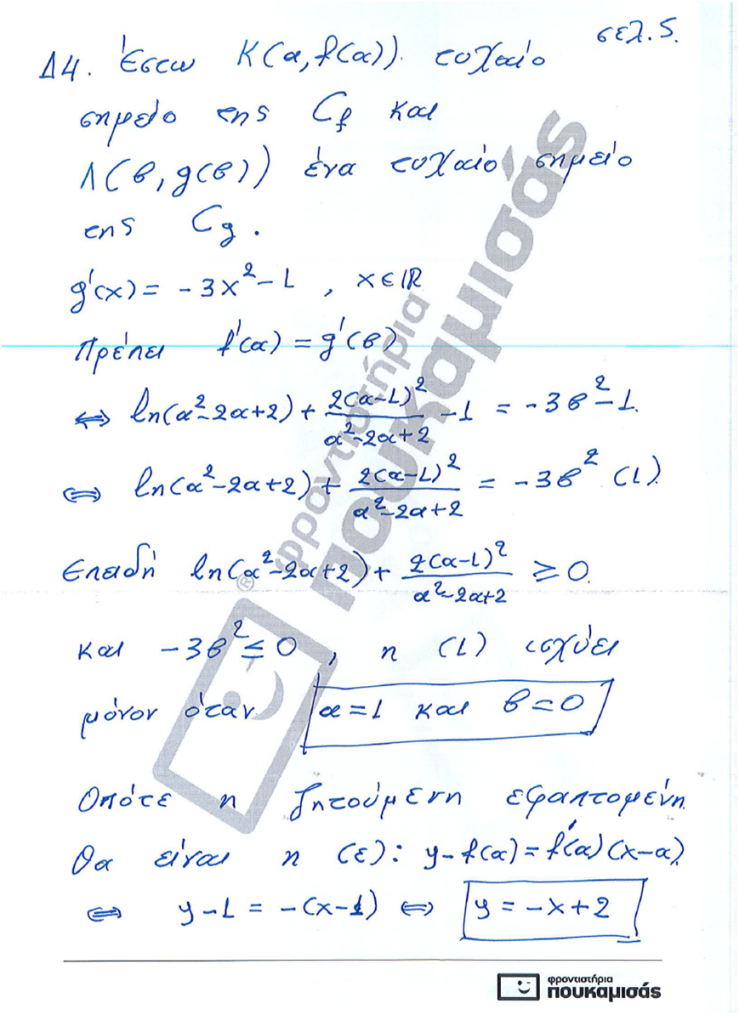 σελ.5.
Δ4. Έστω Κ(α,f(α)) τυχαίο
σημείο της Cf και
Λ(β,g(β)) ένα τυχαίο σημείο
της Cg.
g'(x) = -3x²-1 , x∈ℝ
Πρέπει f'(α) = g'(β)
⇔ ln(α²-2α+2) + 2(α-1)²/(α²-2α+2) -1 = -3β²-1.
⇔ ln(α²-2α+2) + 2(α-1)²/(α²-2α+2) = -3β² (1)
Επειδή ln(α²-2α+2) + 2(α-1)²/(α²-2α+2) ≥ 0.
και -3β² ≤ 0 , η (1) ισχύει
μόνον όταν α=1 και β=0
Οπότε η ζητούμενη εφαπτομένη
θα είναι η (ε): y-f(α) = f'(α)(x-α)
⇔ y-1 = -(x-1) ⇔ y = -x+2
φροντιστήρια
πουκαμισάς
®
φροντιστήρια
πουκαμισάς